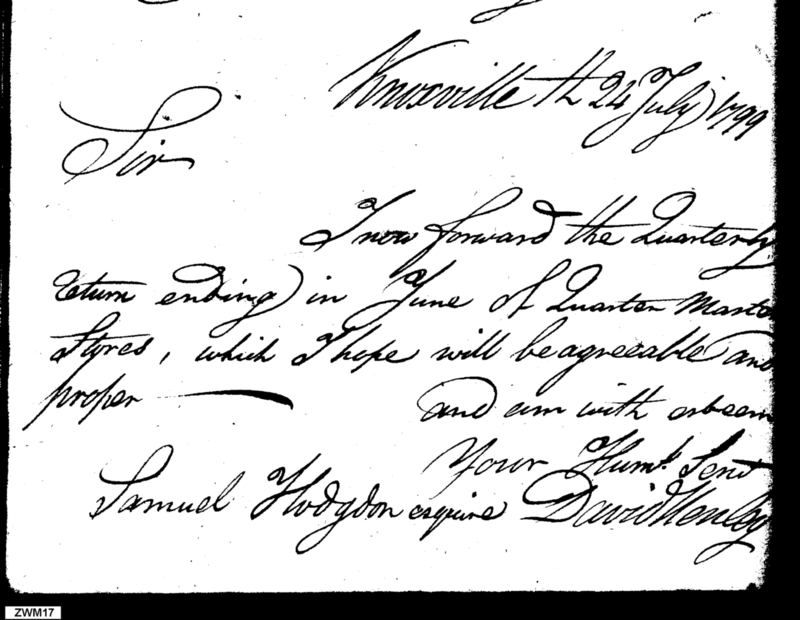 Knoxville th 24 July 1799
Sir
I now forward the Quarterly
return ending in June of Quarter Master
Stores, which I hope will be agreeable and
proper —
and am with esteem
Your Humb. Servt
Samuel Hodgdon esquire David Henley
ZWM17